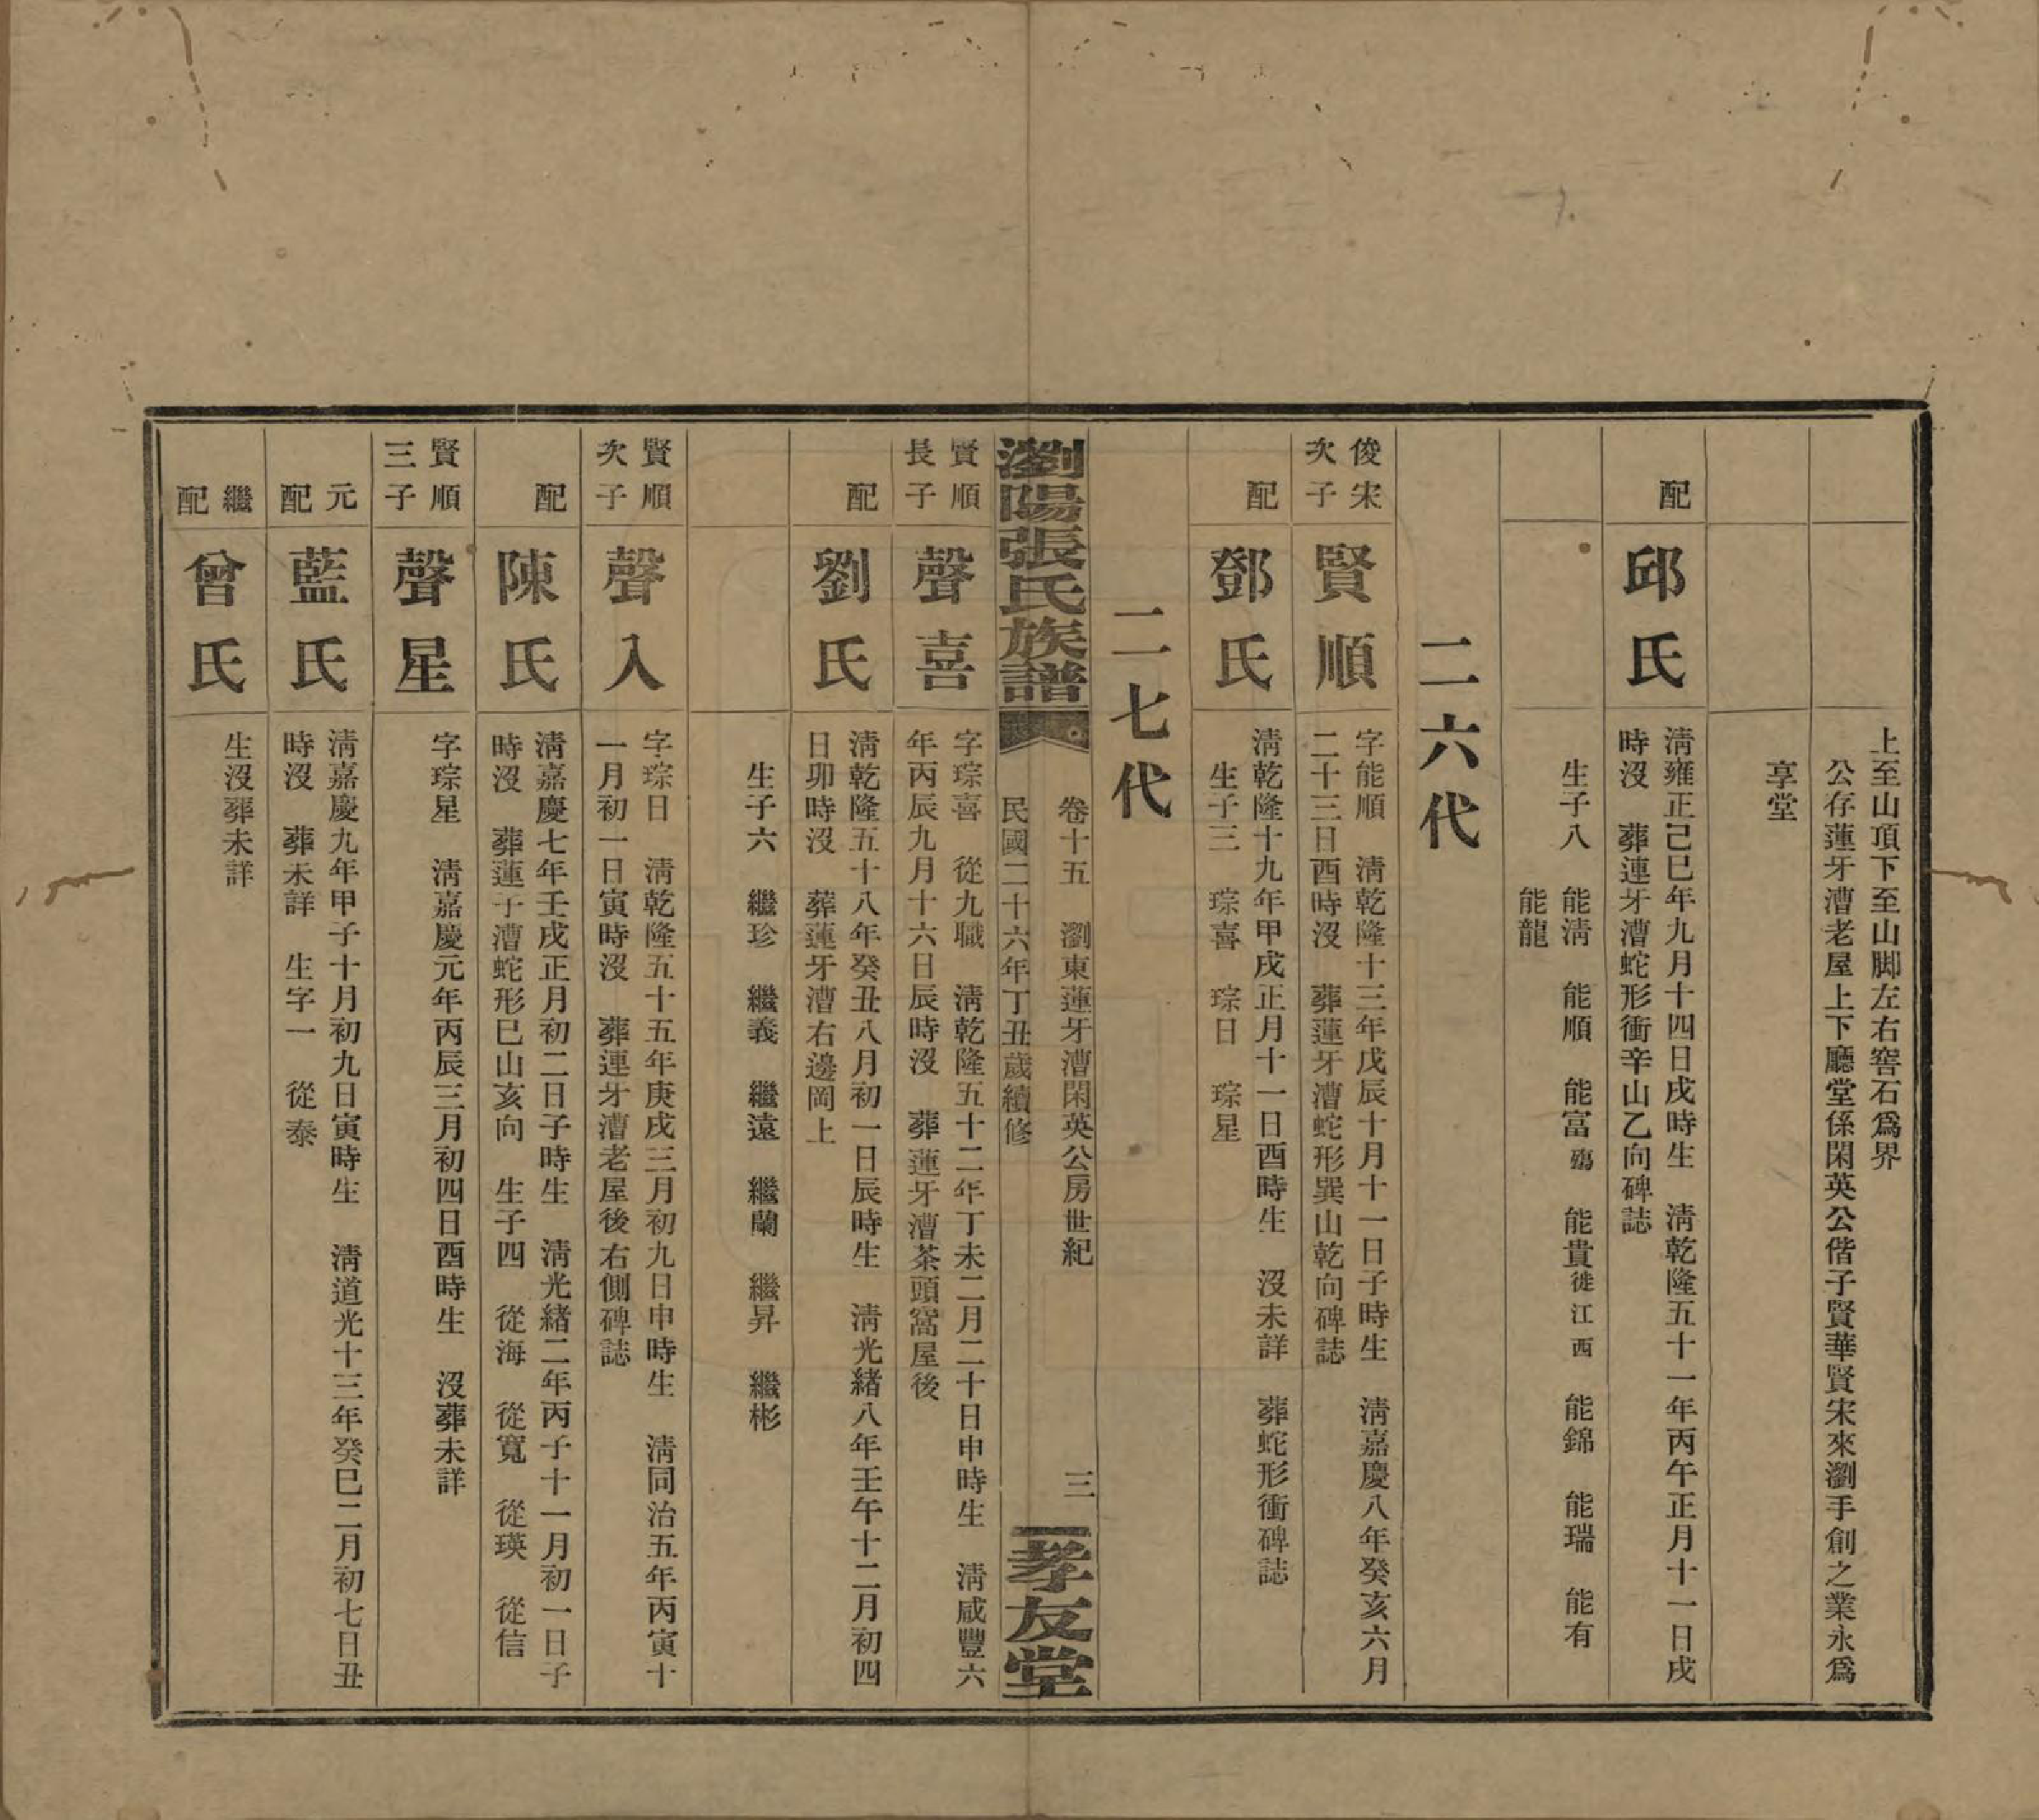 上至山頂下至山脚左右窖石爲界
公存蓮牙漕老屋上下廳堂係閑英公偕子賢華賢宋來瀏手創之業永爲
享堂
配
邱氏
淸雍正己巳年九月十四日戌時生　淸乾隆五十一年丙午正月十一日戌
時沒　葬連牙漕蛇形衝辛山乙向碑誌
生子八　能淸　能順　能富殤　能貴徙江西　能錦　能瑞　能有
能龍
二六代
俊宋
次子
賢順
字能順　淸乾隆十三年戊辰十月十一日子時生　淸嘉慶八年癸亥六月
二十三日酉時沒　葬蓮牙漕蛇形巽山乾向碑誌
配
鄧氏
淸乾隆十九年甲戌正月十一日酉時生　沒未詳　葬蛇形衝碑誌
生子三　琮喜　琮日　琮星
二七代
瀏陽張氏族譜
卷十五　瀏東蓮牙漕閑英公房世紀
三
民國二十六年丁丑歲續修
孝友堂
賢順
長子
聲喜
字琮喜　從九職　淸乾隆五十二年丁未二月二十日申時生　淸咸豐六
年丙辰九月十六日辰時沒　葬蓮牙漕茶頭窩屋後
配
劉氏
淸乾隆五十八年癸丑八月初一日辰時生　淸光緒八年壬午十二月初四
日卯時沒　葬蓮牙漕右邊岡上
生子六　繼珍　繼義　繼遠　繼蘭　繼昇　繼彬
賢順
次子
聲入
字琮日　淸乾隆五十五年庚戌三月初九日申時生　淸同治五年丙寅十
一月初一日寅時沒　葬連牙漕老屋後右側碑誌
配
陳氏
淸嘉慶七年壬戌正月初二日子時生　淸光緒二年丙子十一月初一日子
時沒　葬蓮子漕蛇形巳山亥向　生子四　從海　從寬　從瑛　從信
賢順
三子
聲星
字琮星　淸嘉慶元年丙辰三月初四日酉時生　沒葬未詳
元
配
藍氏
淸嘉慶九年甲子十月初九日寅時生　淸道光十三年癸巳二月初七日丑
時沒　葬未詳　生字一　從泰
繼
配
曾氏
生沒葬未詳